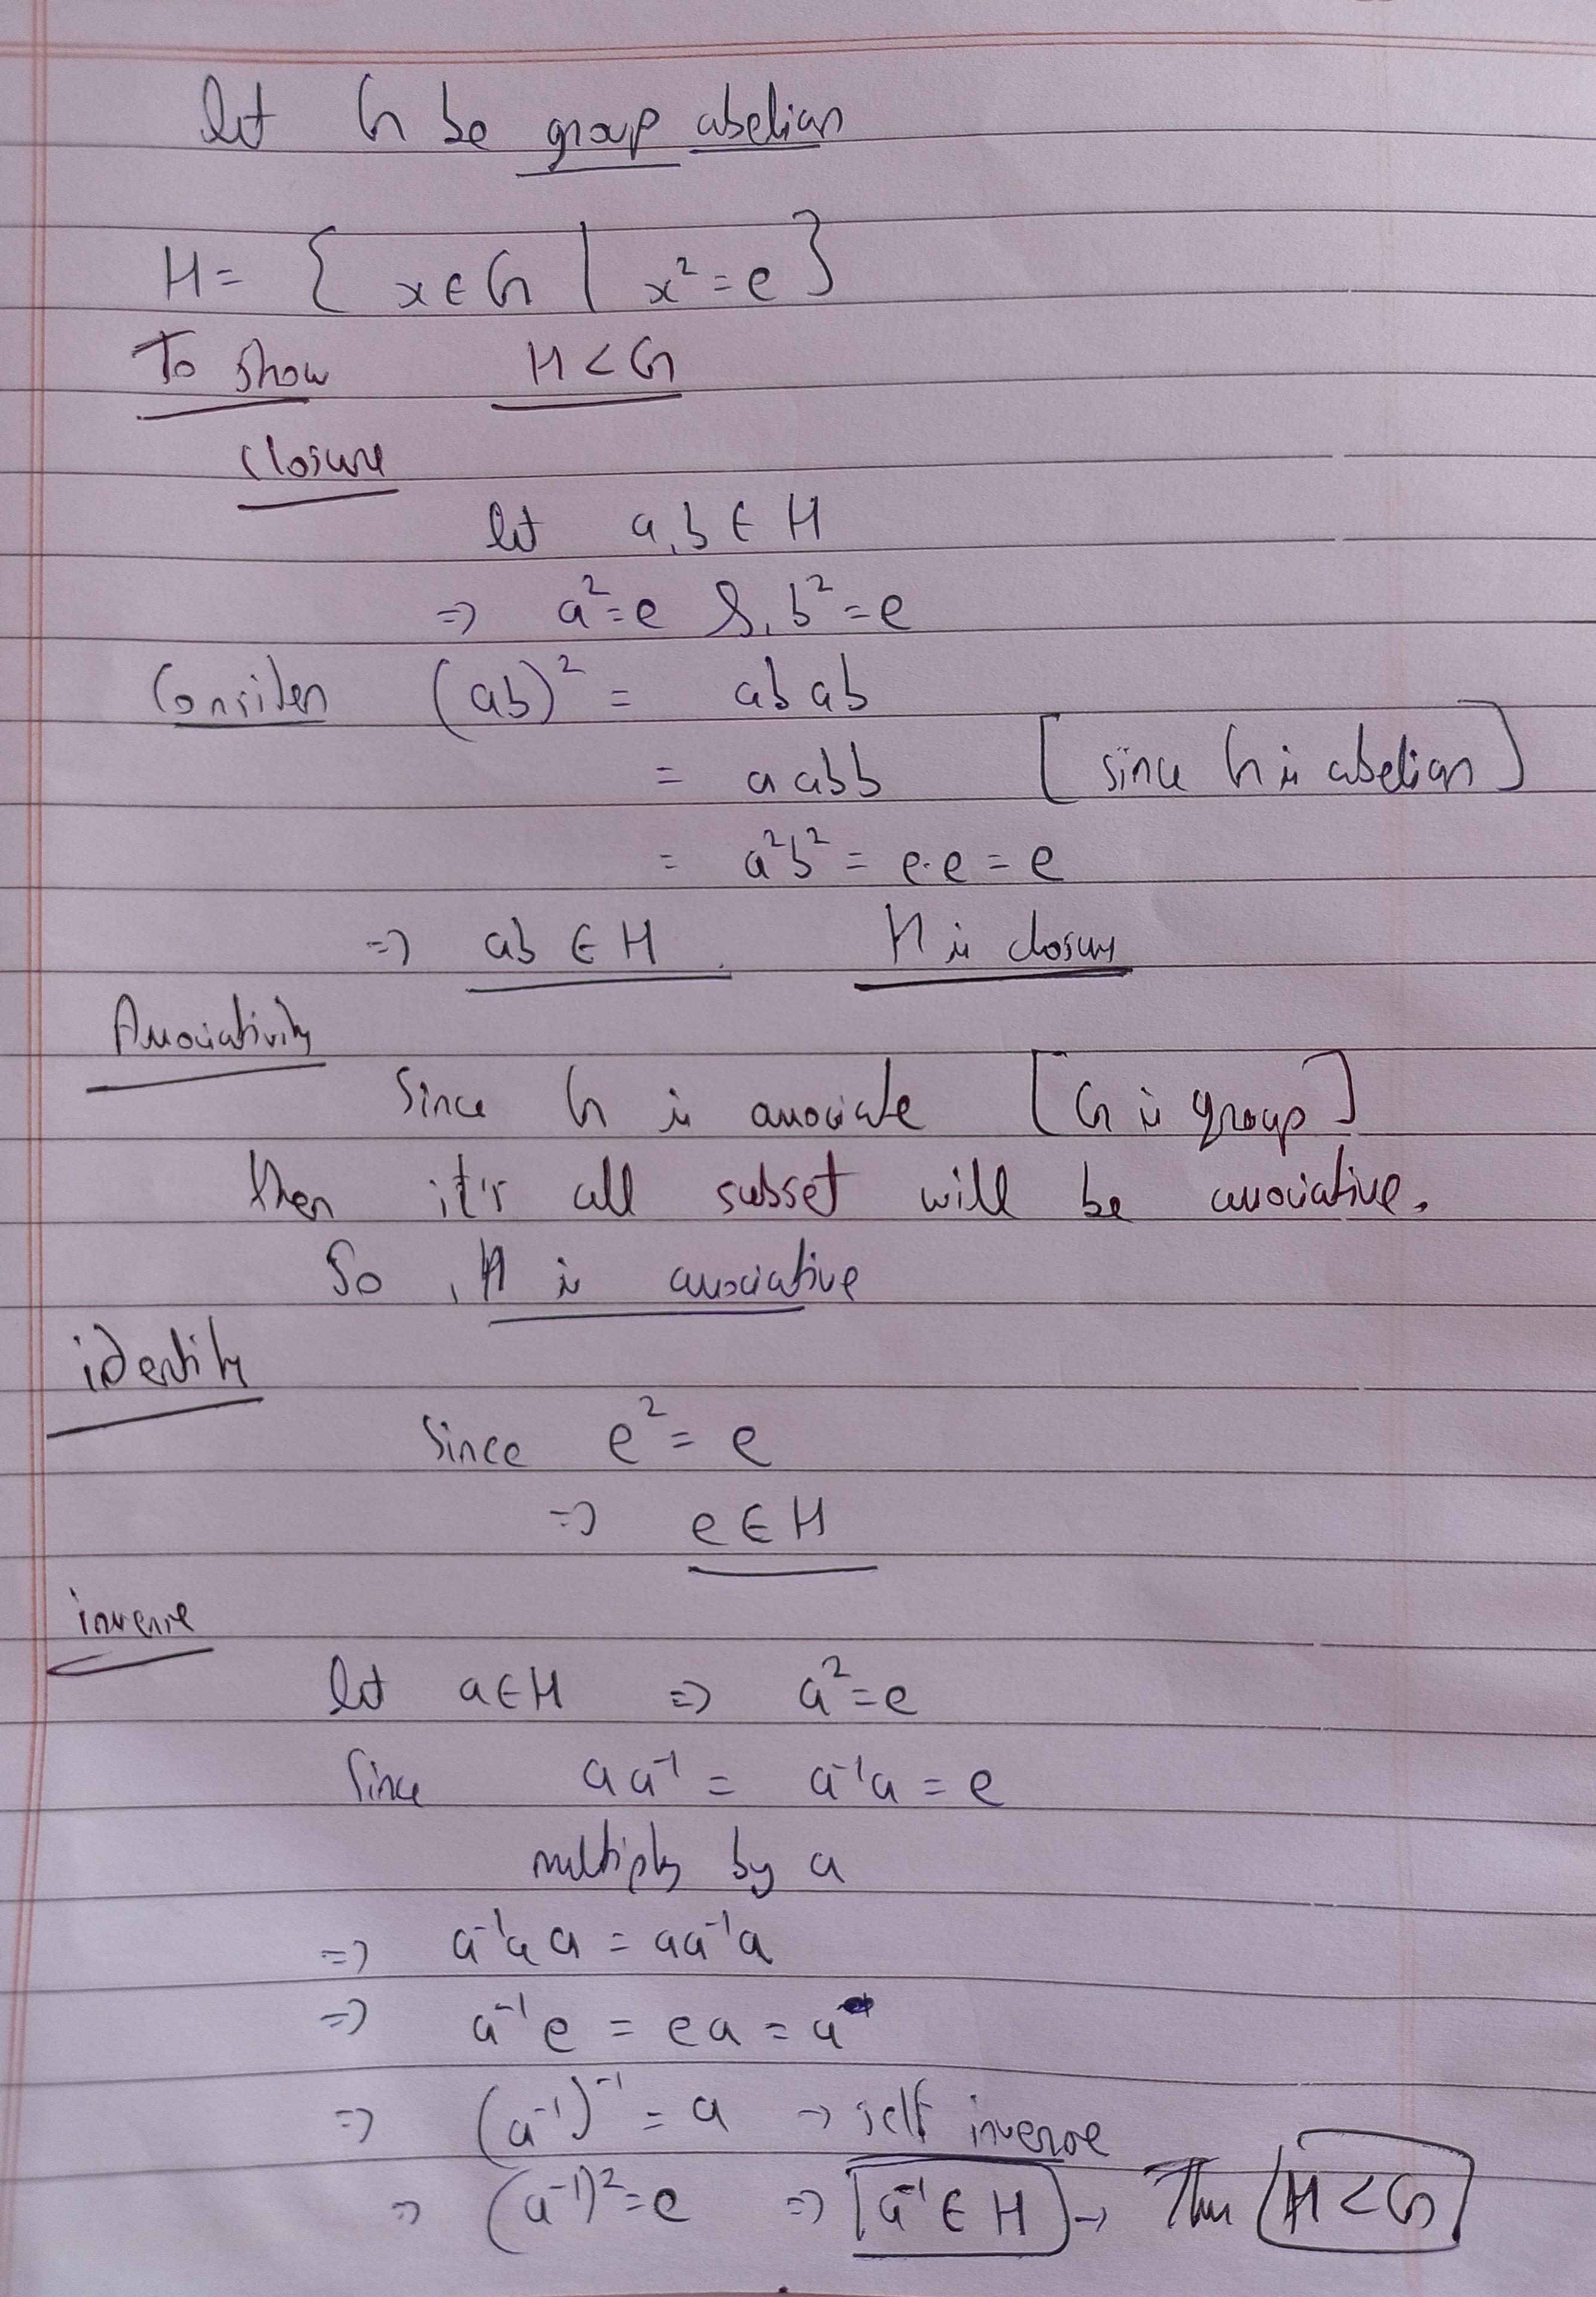 let G be group abelian
H = { x ∈ G | x² = e }
To show H < G
Closure
let a, b ∈ H
⇒ a² = e & b² = e
Consider (ab)² = ab ab
= a abb [since G is abelian]
= a²b² = e·e = e
⇒ ab ∈ H. H is closure
Associativity
Since G is associate [G is group]
then it's all subset will be associative.
So, H is associative
identity
Since e² = e
⇒ e ∈ H
inverse
let a ∈ H ⇒ a² = e
Since aa⁻¹ = a⁻¹a = e
multiply by a
⇒ a⁻¹a a = aa⁻¹a
⇒ a⁻¹e = ea = a
⇒ (a⁻¹)⁻¹ = a → self inverse
⇒ (a⁻¹)² = e ⇒ a⁻¹ ∈ H → Thus H < G